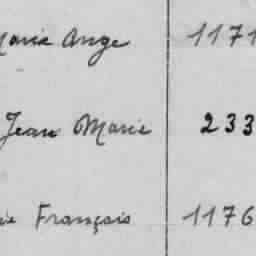 Marie Ange 1171
Jean Marie 233
François 1176